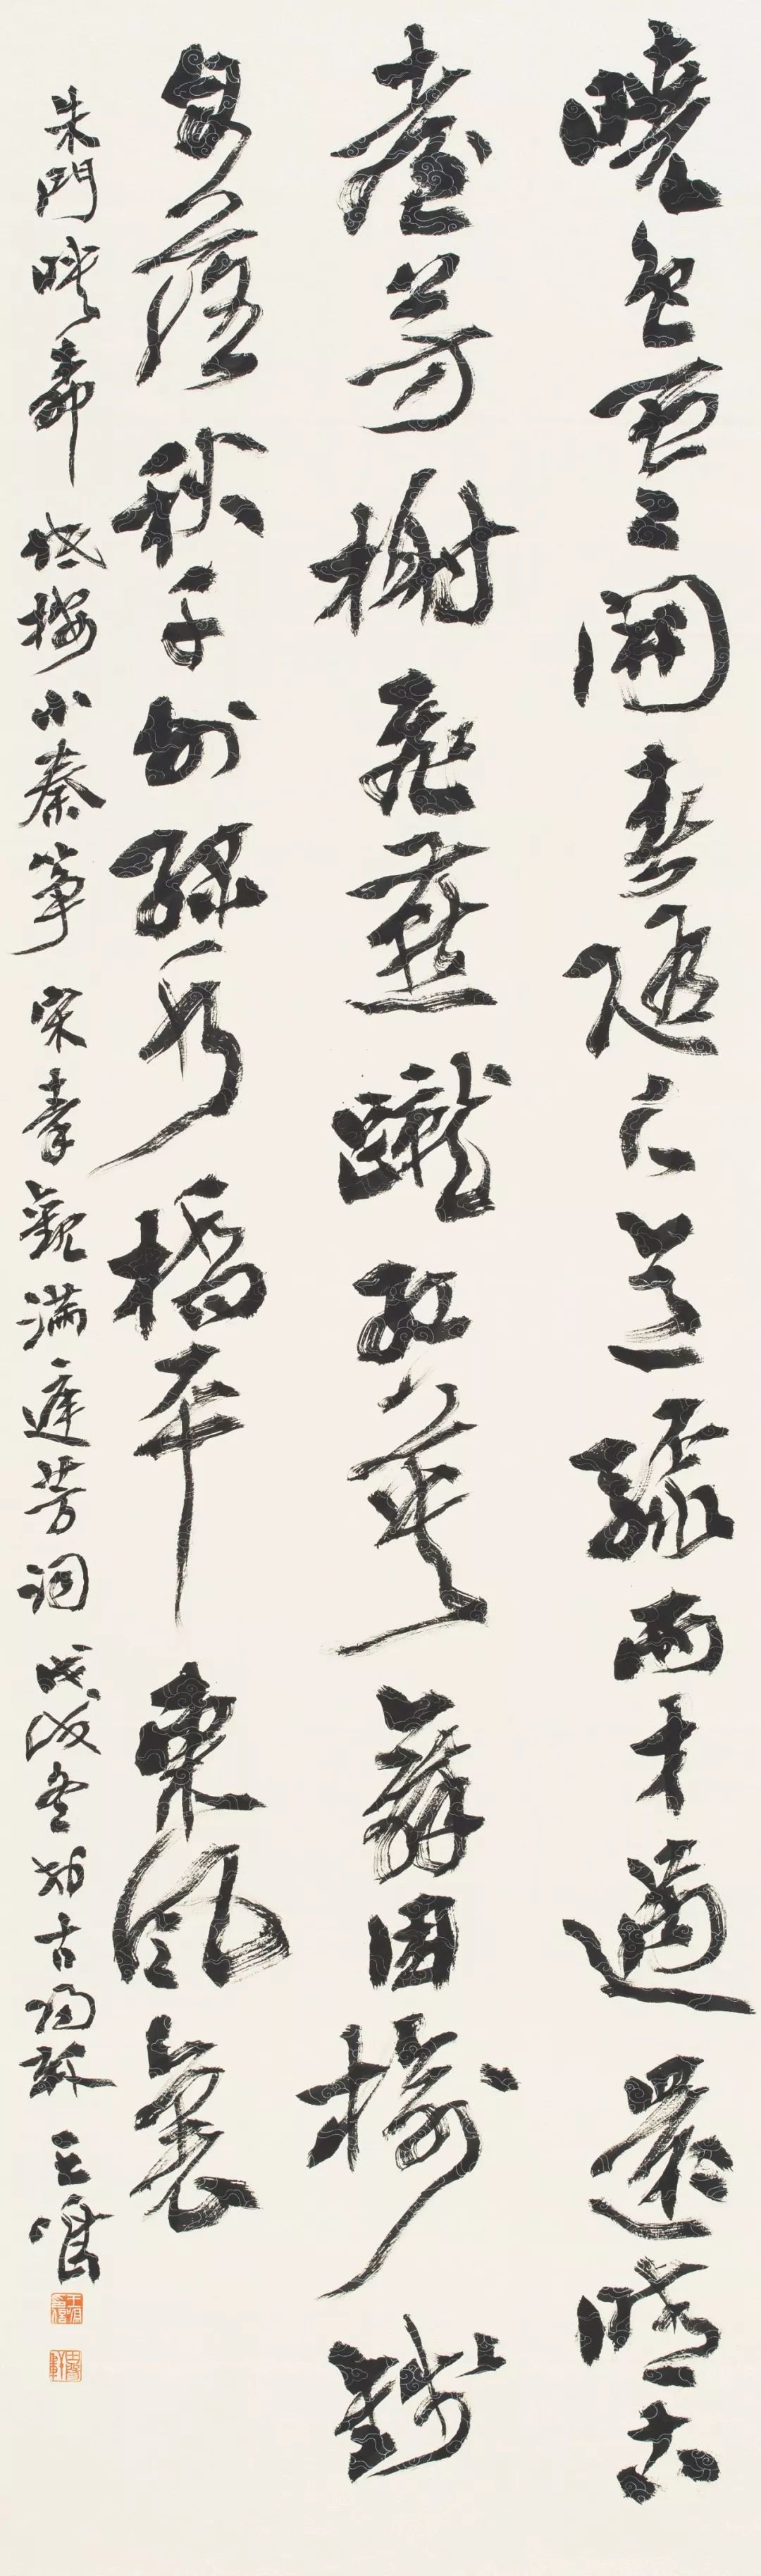 曉色雲開春随人意驟雨才過還晴古
臺芳榭飛燕蹴紅英舞困榆錢
自落秋千外緑水橋平東風裏
朱門映柳低按小秦筝宋秦觀滿庭芳詞戊戌冬於古陽王